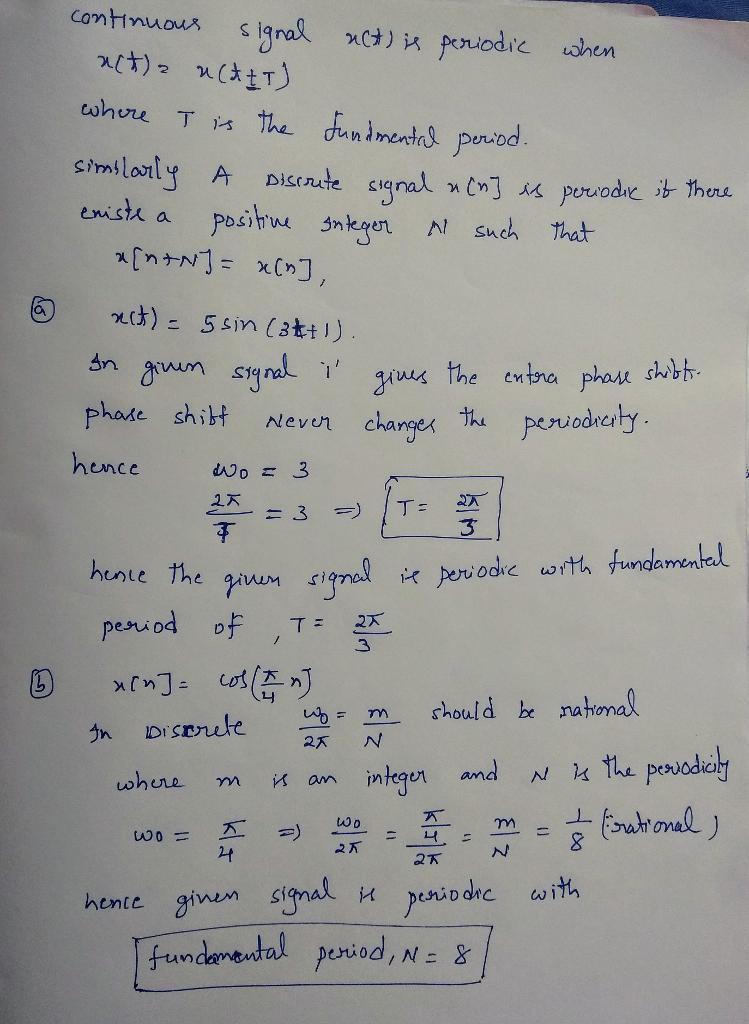 continuous signal x(t) is periodic when
x(t) = x(t±T)
where T is the fundmental period.
similarly A Discrute signal x[n] is periodic if there
exists a positive Integer N such that
x[n+N] = x[n],
(a) x(t) = 5 sin (3t+1).
In given signal '1' gives the extra phase shift.
phase shift Never changes the periodicity.
hence ω0 = 3
2π/T = 3 => T = 2π/3
hence the given signal is periodic with fundamental
period of, T = 2π/3
(b) x[n] = cos(π/4 n]
In Discrete ω0/2π = m/N should be rational
where m is an integer and N is the periodicity
ω0 = π/4 => ω0/2π = (π/4)/2π = m/N = 1/8 (rational)
hence given signal is periodic with
fundamental period, N = 8